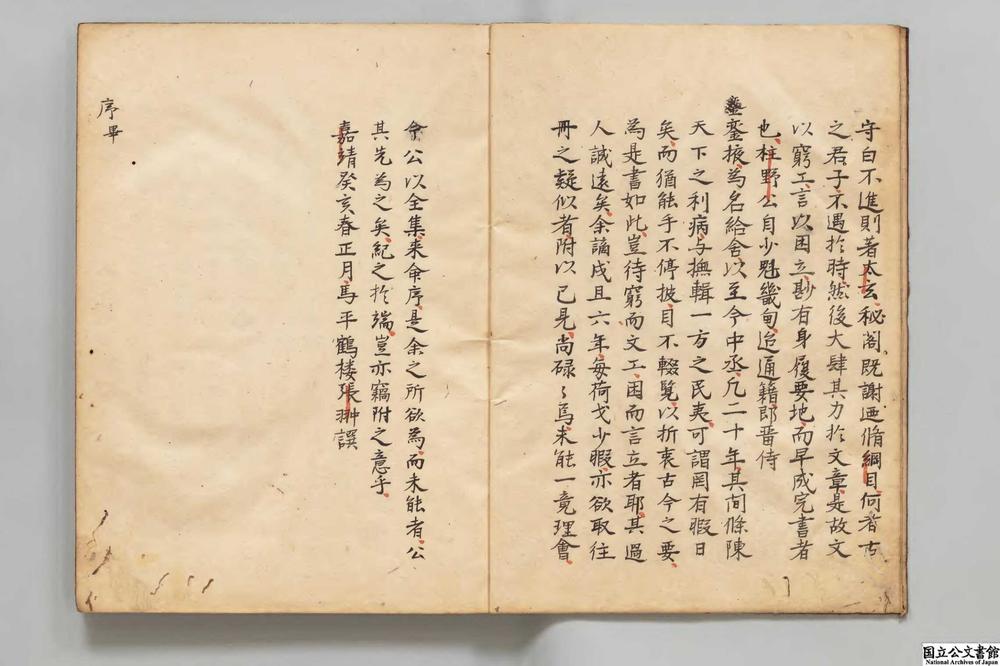 守白不進則著太玄秘閣既謝廼脩綱目何者古
之君子不遇於時然後大肆其力於文章是故文
以窮工言以困立尠有身履要地而早成完書者
也柱野公自少魁畿甸迨通籍即晋侍
鑾掖為名給舍以至今中丞凡二十年其間條陳
天下之利病与撫輯一方之民夷可謂罔有暇日
矣而猶能手不停披目不輟覧以折衷古今之要
為是書如此豈待窮而文工困而言立者耶其過
人誠遠矣余謫戍且六年每荷戈少暇亦欲取往
冊之疑似者附以已見尚碌々焉未能一竟理會
今公以全集来命序是余之所欲為而未能者公
其先為之矣紀之於端豈亦竊附之意乎
嘉靖癸亥春正月馬平鶴楼張翀譔
序畢
国立公文書館
National Archives of Japan